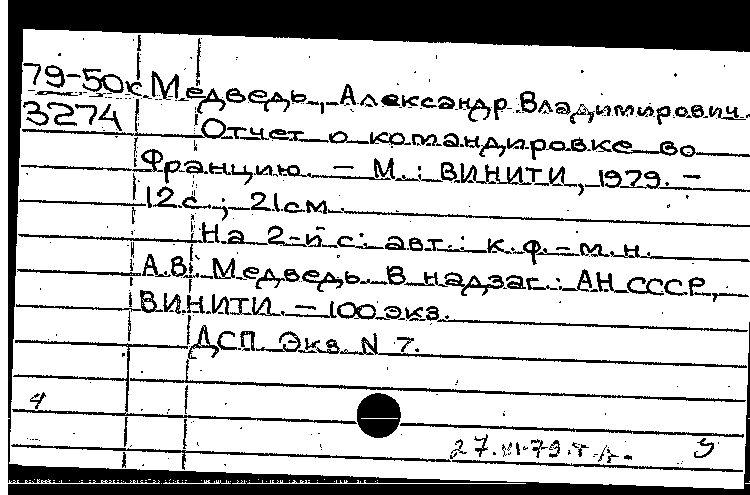 79-50к Медведь, Александр Владимирович.
3274 Отчет о командировке во
Францию. – М.: ВИНИТИ, 1979. –
12с.; 21см.
На 2-й с: авт.: к.ф.-м.н.
А.В. Медведь. В надзаг.: АН СССР,
ВИНИТИ. – 100 экз.
ДСП. Экз. N 7.
4